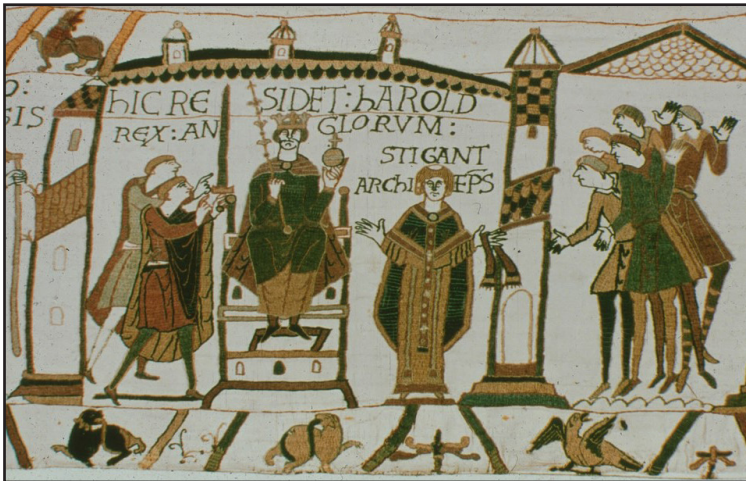 O:
SIS
hIC RE SIDET: hAROLD
REX: AN GLORVM:
STIGANT
ARChI EPS